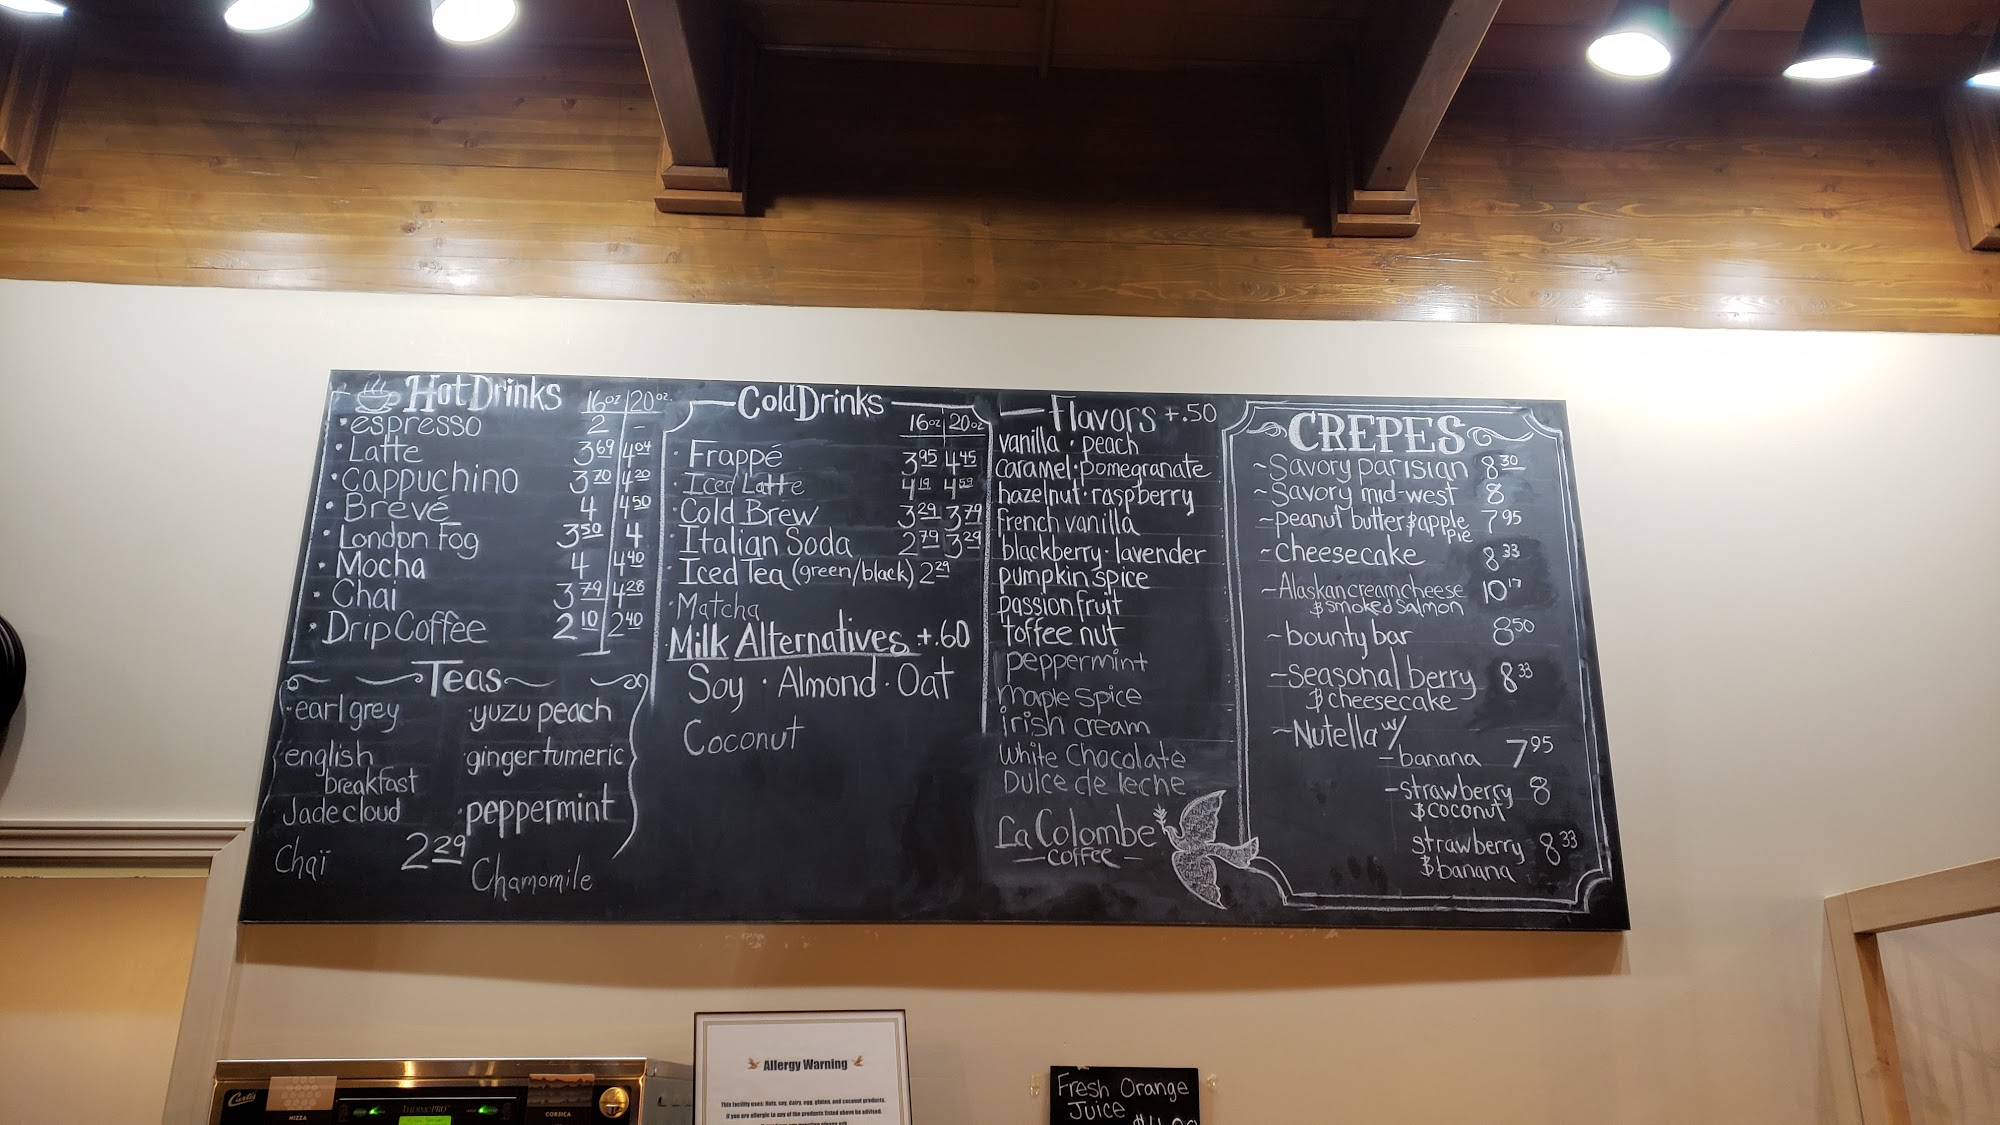 Hot Drinks 16oz 20oz.
· espresso 2 -
· Latte 3.69 4.04
· cappuchino 3.70 4.20
· Brevé 4 4.50
· London Fog 3.50 4
· Mocha 4 4.40
· Chai 3.79 4.28
· Drip Coffee 2.10 2.40
Teas
· earl grey
english
breakfast
Jade cloud
Chaï
2.29
· yuzu peach
· ginger tumeric
· peppermint
Chamomile
Cold Drinks
16oz 20oz
· Frappé 3.95 4.45
· Iced Latte 4.19 4.59
· Cold Brew 3.29 3.79
· Italian Soda 2.79 3.29
· Iced Tea (green/black) 2.29
· Matcha
Milk Alternatives +.60
Soy · Almond · Oat
Coconut
Flavors +.50
vanilla · peach
caramel · pomegranate
hazelnut · raspberry
french vanilla
blackberry · lavender
pumpkin spice
passion fruit
toffee nut
peppermint
maple spice
irish cream
White Chocolate
Dulce de leche
La Colombe
— coffee —
CREPES
~ Savory parisian 8.30
~ Savory mid-west 8
~ peanut butter & apple 7.95
pie
~ cheesecake 8.33
~ Alaskan cream cheese 10.17
& smoked salmon
~ bounty bar 8.50
~ seasonal berry 8.33
& cheesecake
~ Nutella w/
- banana 7.95
- strawberry 8
& coconut
strawberry 8.33
& banana
Curtis
NIZZA
THERMOPRO
CORSICA
Allergy Warning
This facility uses: Nuts, soy, dairy, egg, gluten, and coconut products.
If you are allergic to any of the products listed above be advised.
Fresh Orange
Juice